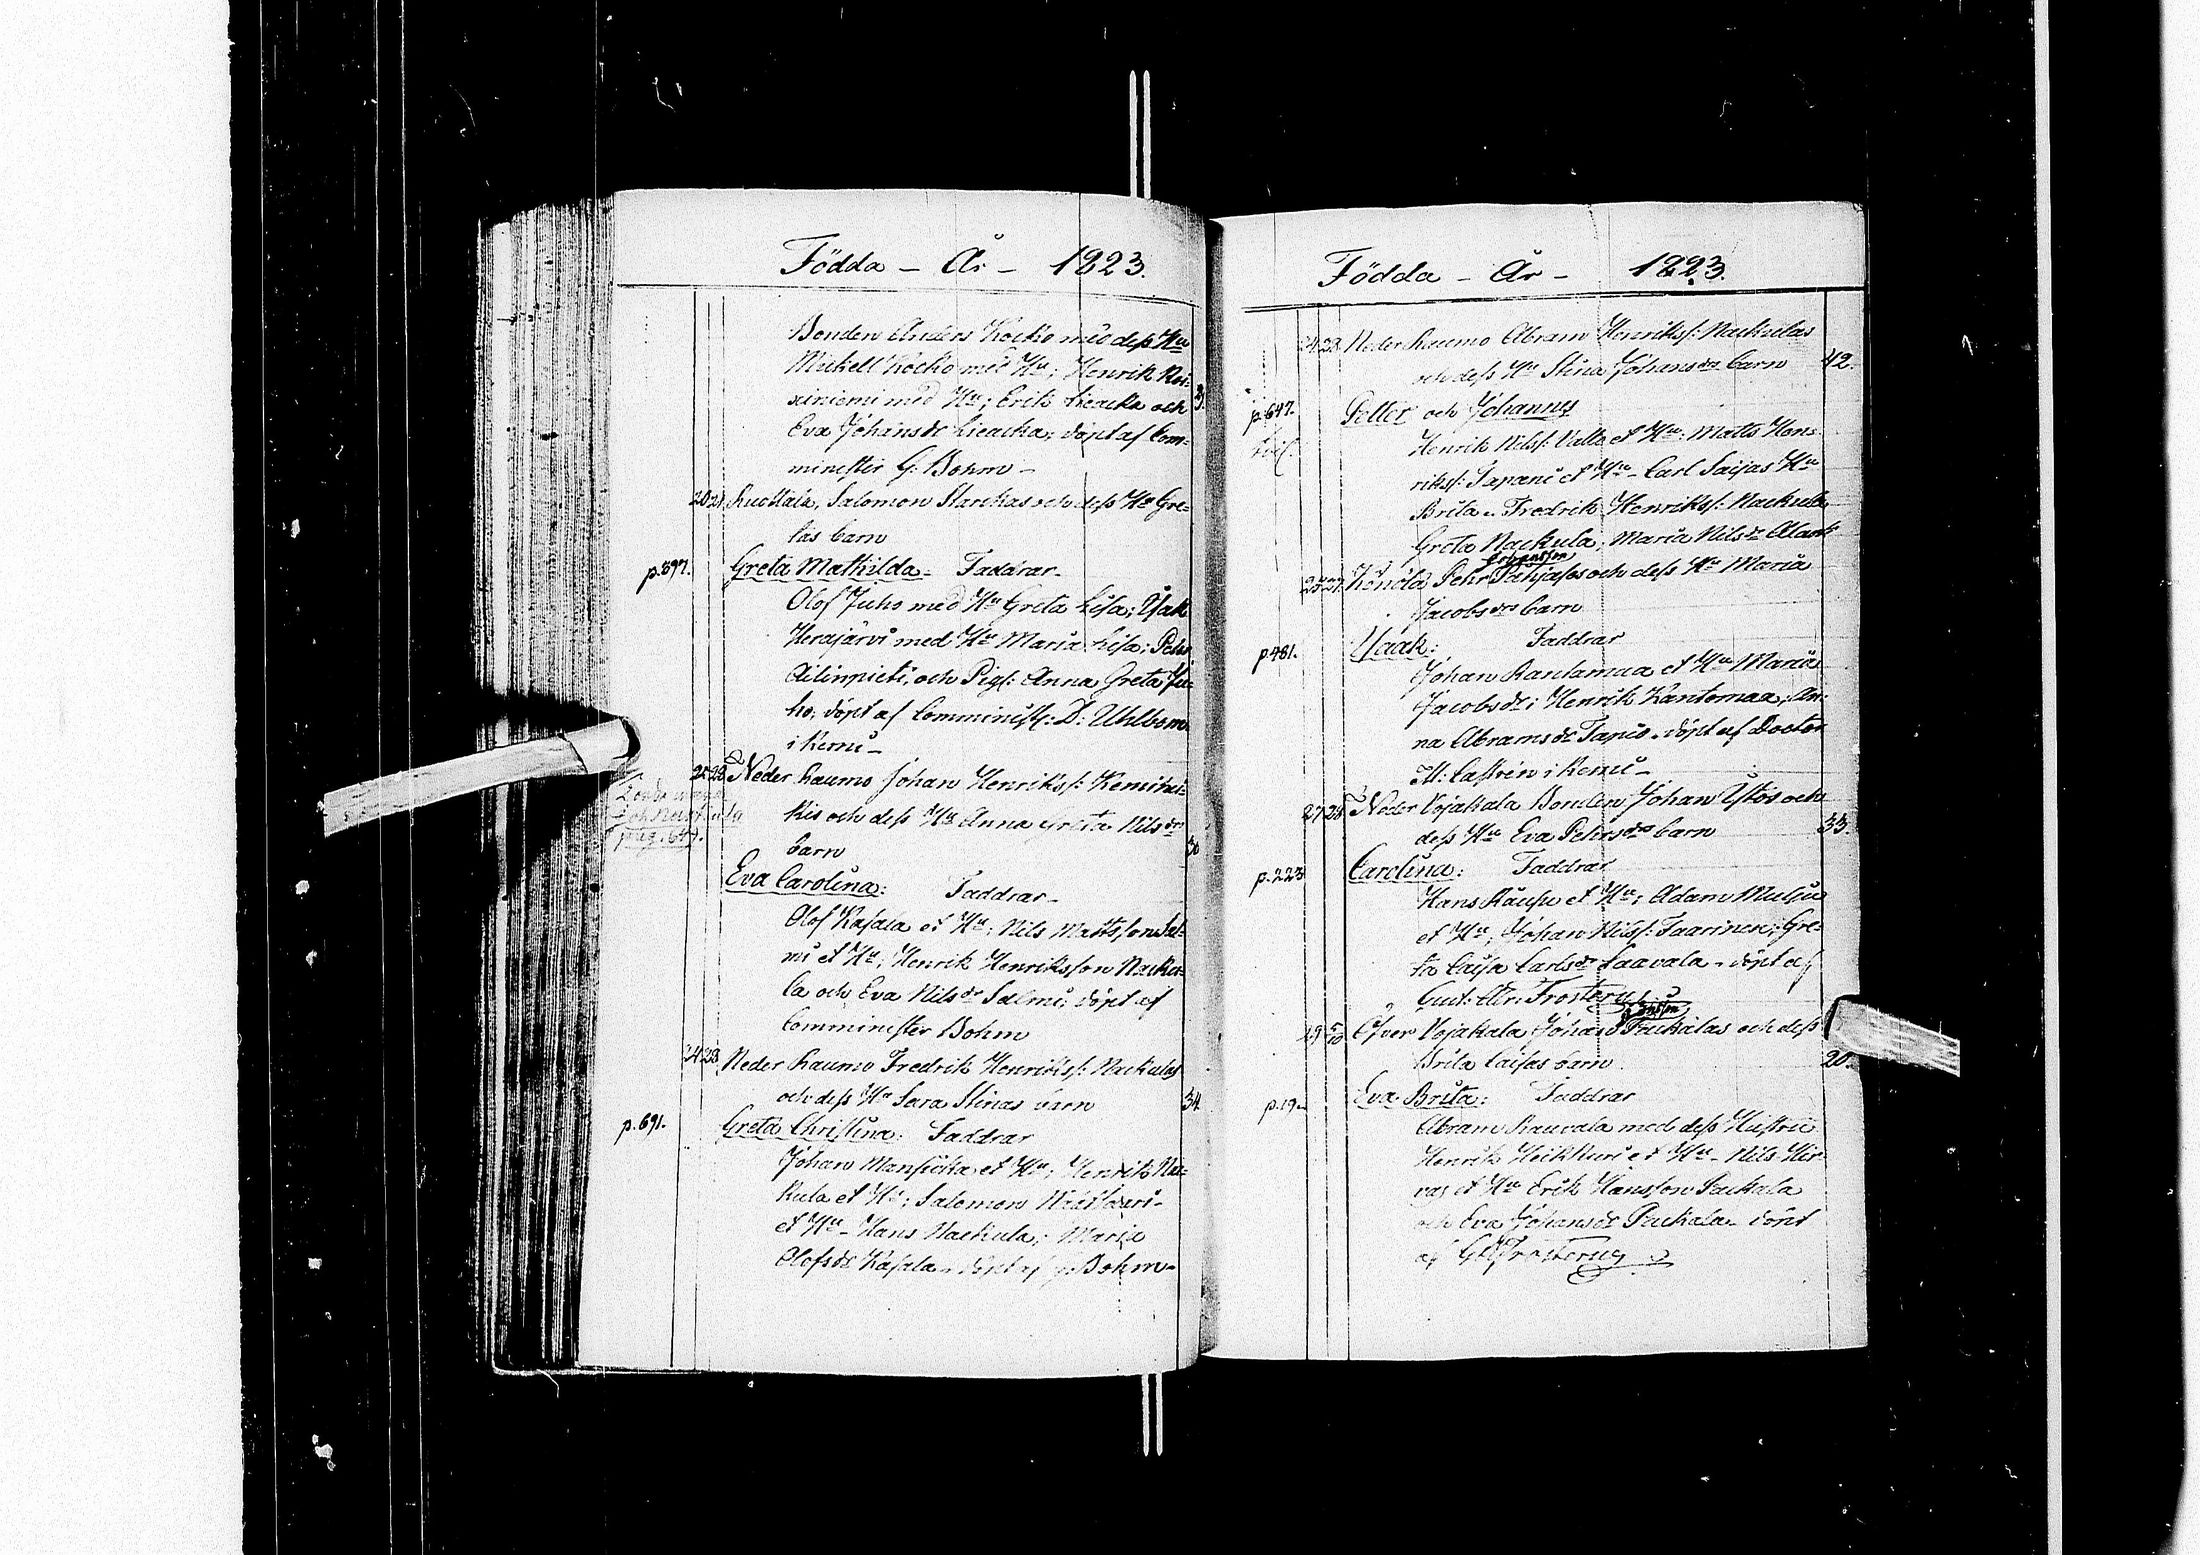 Födda – År – 1823.
Bonden Anders Kocko med dess Hu
Mickell Kocko med Hu; Henrik Roi-
niemi med Hu; Erik Lieacka och 3.
Eva Johans dr Lieacka; döpt af Com-
minister G: Bohm –
20 21 Ruottala, Salomon Starckas och dess Hu Gre-
tas barn
p.397. Greta Mathilda – Faddrar –
Olof Juho med Hu Greta Lisa; Isak
Herajärvi med Hu Maria Lisa; Pehr
Ailinpieti, och Pig: Anna Greta Ju-
ho; döpt af Comminist: D: Uhlbom
i Kemi –
22 23 Neder Raumo Johan Henrikss: Kemihi-
kis och dess Hu Anna Greta Nils drs
barn 30
pag. 649.
Eva Carolina: Faddrar –
Olof Kasala et Hu; Nils Mattsson Sal-
mi et Hu; Henrik Henriksson Nacku-
la och Eva Nils dr Salmi; döpt af
Comminister Bohm
24 28 Neder Raumo Fredrik Henrikss: Nackulas
och dess Hu Sara Stinas barn 34
p.691. Greta Christina: Faddrar
Johan et Hu; Henrik Nac-
kula et Hu; Salomon
et Hu – Hans Nackula; Maria
Olofs dr Kasala – döpt af G: Bohm –
Födda – År – 1823.
24 28 Neder Raumo Abram Henrikss: Nackulas
och dess Hu Stina Johans drs barn 42.
p.647. Petter och Johannes
Henrik Nilss: Valle et Hu: Matts Hen-
rikss: Tapani et Hu – Carl Saijas Hu
Brita – Fredrik Henrikss: Nackula,
Greta Nackula; Maria Nils dr Alart
Johansson
25 27 Könölä Pehr och dess Hu Maria
Jacobs drs barn
p.481. Isaak: Faddrar
Johan Rantamaa et Hu Maria
Jacobs dr; Henrik Rantomaa; An-
na Abrams dr Tapio – döpt af Doctor
M: Castrén i Kemi –
27 28 Neder Vojakala Bonden Johan Ylitös och
dess Hu Eva Pehrs drs barn 33.
p.223 Carolina: Faddrar
Hans et Hu; Adam
et Hu; Johan Nilss: Taarinen; Gre-
ta Caisa Carls dr Laavala – döpt af
Gust: Adr: Frosterus
29 5/10 Öfver Vojakala Johan Puckalas och dess
Brita Caisas barn 20.
p.19 – Eva Brita: Faddrar
Abram Rauvala med dess Hustru
Henrik Heikkuri et Hu – Nils Hir-
vas et Hu Erik Hansson Puckala
och Eva Johans dr Puckala – döpt
af G A Frosterus